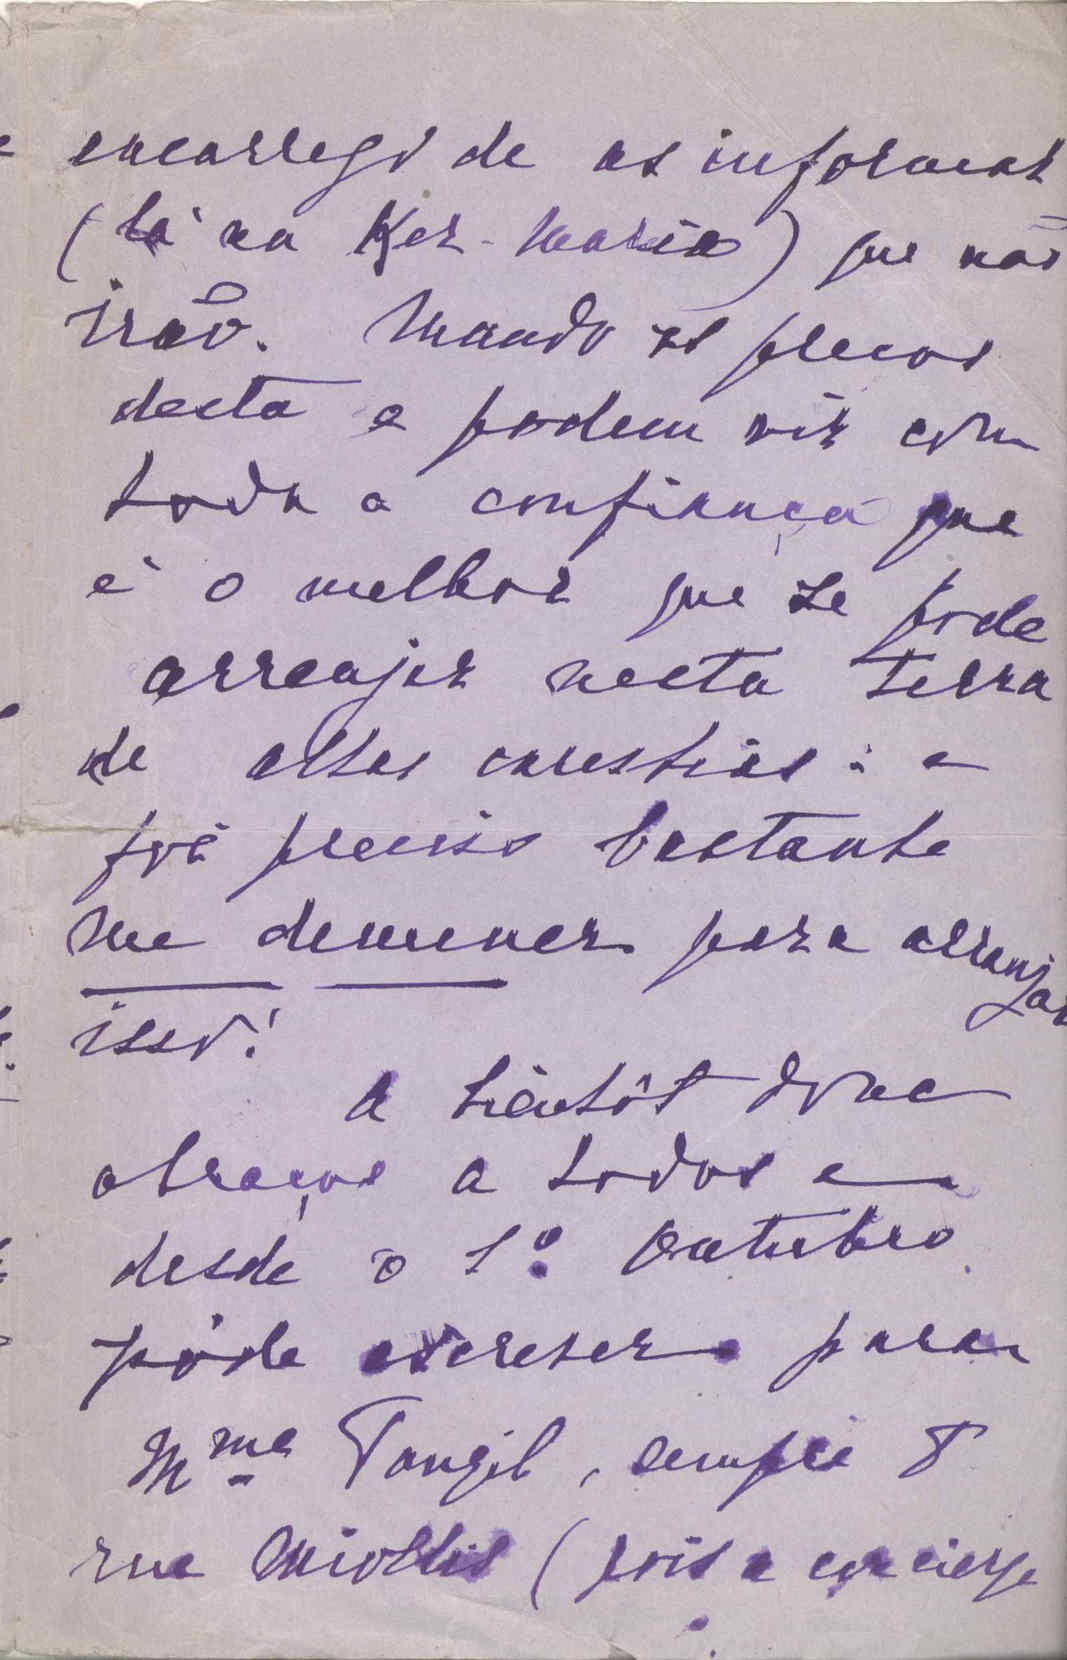 encarrego de as informar
(lá na Ker-Maria) que não
irão. Mando os preços
desta e podem vir com
toda a confiança que
é o melhor que se pode
arranjar nesta terra
de altas carestias: e
foi preciso bastante
me demener para arranjar
isso!
A bientôt donc
abraços a todos e
desde o 1º Outubro
póde escrever para
Mme Tangil, sempre 8
rue Miollis (pois a concierge